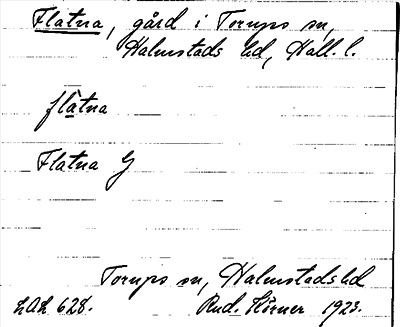 Flatna, gård i Torups sn,
Halmstads hd, Hall. l.
flatna
Flatna G
Torups sn, Halmstads hd
LAL 628. Rud. Hörner 1923.